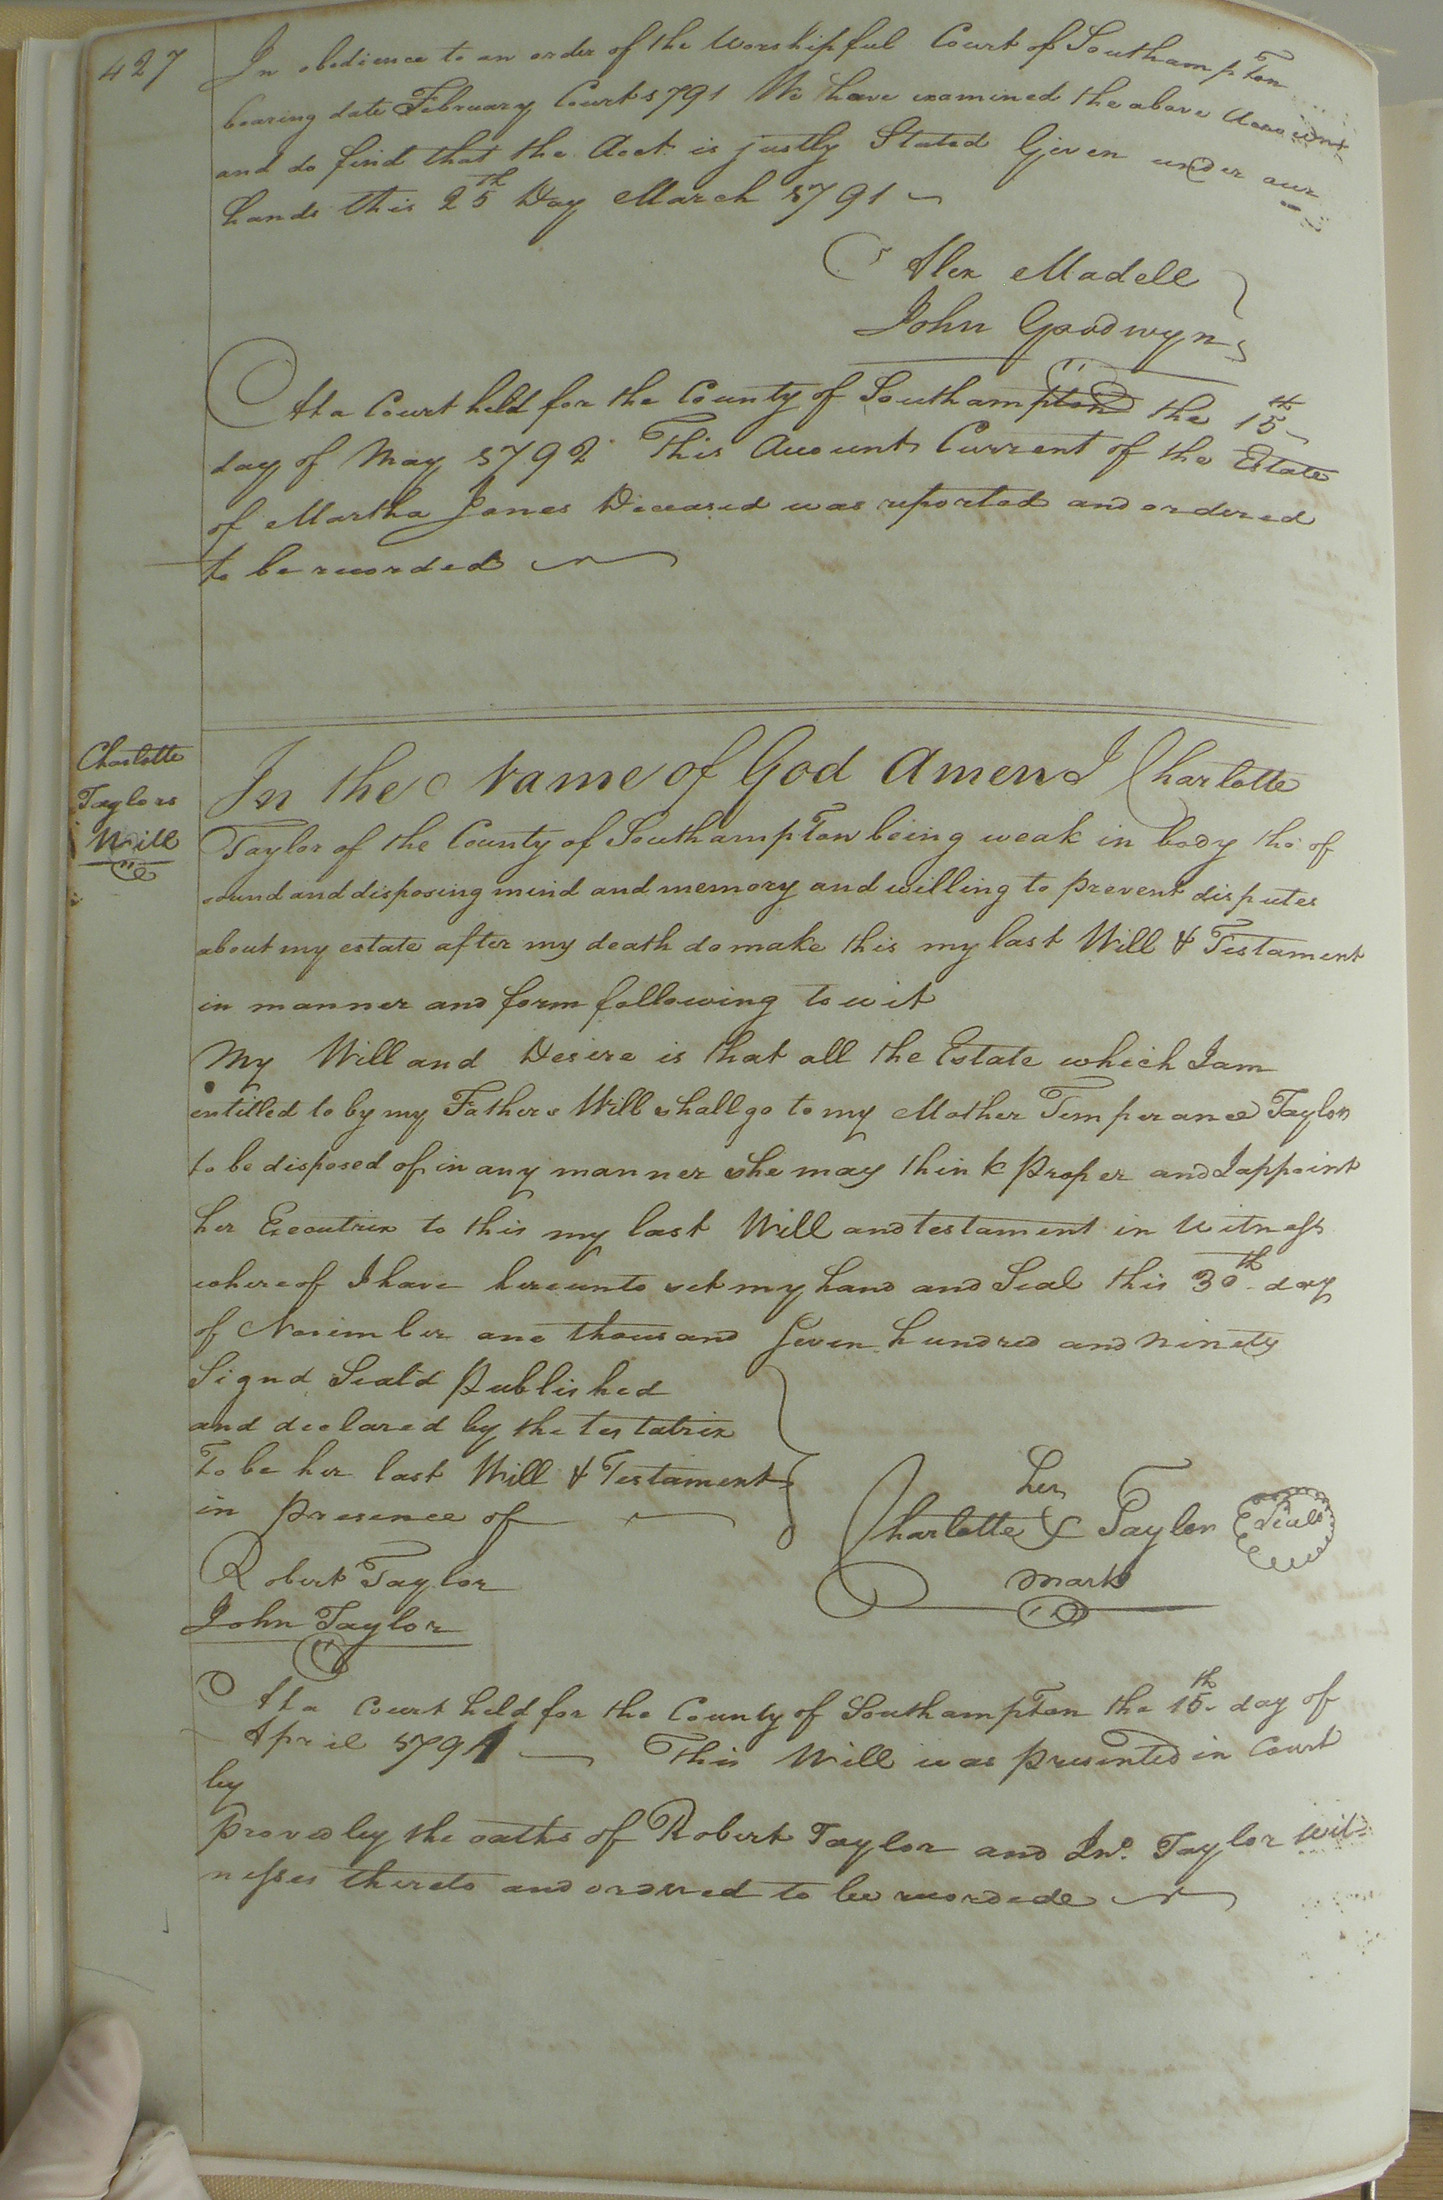 427
In obedience to an order of the Worshipful Court of Southampton
bearing date February Court 1791 We have examined the above Account
and do find that the Acct. is justly Stated Given under our
hands this 25th Day March 1791
Alex Madell
John Goodwyn
At a Court held for the County of Southampton the 15th
day of May 1792 This Account Current of the Estate
of Martha Jones Deceased was reported and ordered
to be recorded
Charlotte
Taylors
Will
In the Name of God Amen I Charlotte
Taylor of the County of Southampton being weak in body tho of
sound and disposing mind and memory and willing to prevent disputes
about my estate after my death do make this my last Will & Testament
in manner and form following to wit
My Will and Desire is that all the Estate which I am
entitled to by my Fathers Will shall go to my Mother Temperance Taylor
to be disposed of in any manner she may think proper and I appoint
her Executrix to this my last Will and testament in Witness
whereof I have hereunto set my hand and Seal this 30th day
of November one thousand Seven hundred and ninety
Signd Seal'd Published
and declared by the testatrix
To be her last Will & Testament
in presence of
Robert Taylor
John Taylor
her
Charlotte X Taylor Seal
mark
At a Court held for the County of Southampton the 15th day of
April 1791 This Will was presented in Court
by
proved by the oaths of Robert Taylor and Jno. Taylor wit-
nesses thereto and ordered to be recorded